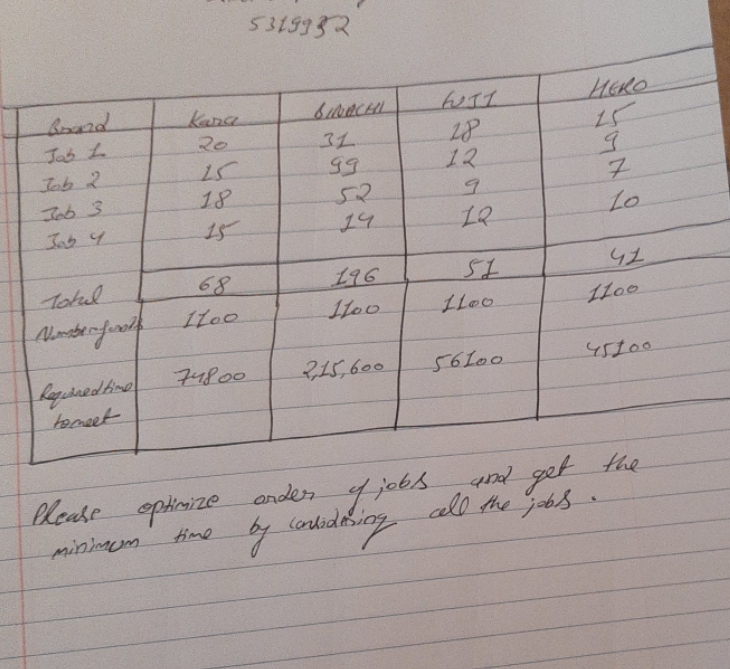 5319932
Brand Kara BIRACHI WJ1 HERO
Job 1 20 31 18 15
Job 2 15 99 12 9
Job 3 18 52 9 7
Job 4 15 14 12 10
Total 68 196 51 41
Number of units 1100 1100 1100 1100
Required time 74800 215,600 56100 45100
to meet
Please optimize order of jobs and get the
minimum time by considering all the jobs.